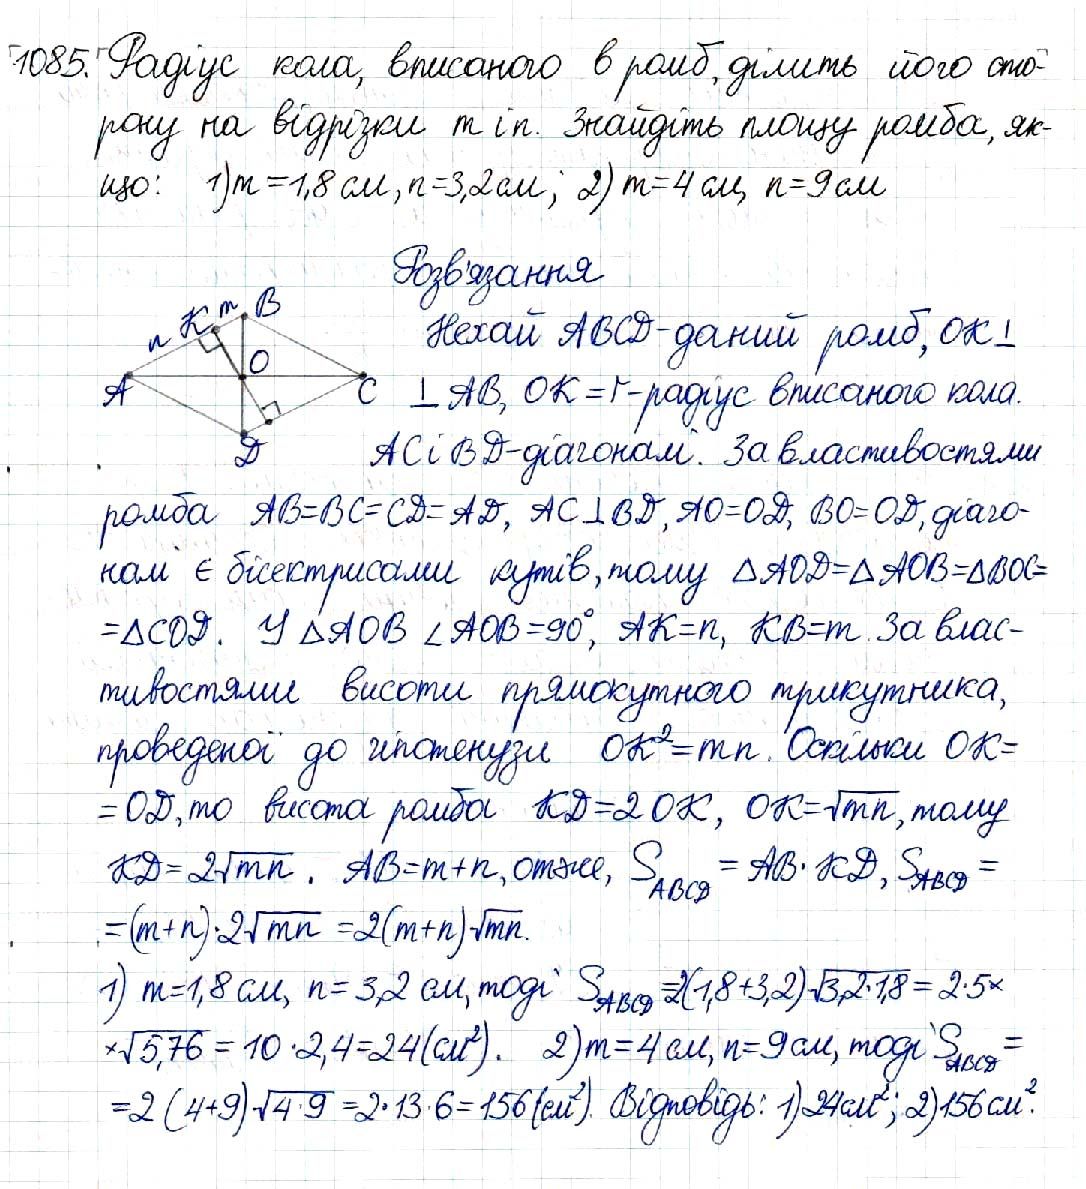 1085. Радіус кола, вписаного в ромб, ділить його сто-
рону на відрізки m і n. Знайдіть площу ромба, як-
що: 1) m = 1,8 см, n = 3,2 см; 2) m = 4 см, n = 9 см
Розв'язання
n K m B
A O C
D
Нехай ABCD - даний ромб, OK ⊥
⊥ AB, OK = r - радіус вписаного кола.
AC і BD - діагоналі. За властивостями
ромба AB = BC = CD = AD, AC ⊥ BD, AO = OD, BO = OD, діаго-
налі є бісектрисами кутів, тому △AOD = △AOB = △BOC =
= △COD. У △AOB ∠AOB = 90°, AK = n, KB = m. За влас-
тивостями висоти прямокутного трикутника,
проведеної до гіпотенузи OK² = mn. Оскільки OK =
= OD, то висота ромба KD = 2 OK, OK = √mn, тому
KD = 2√mn. AB = m + n, отже, S_ABCD = AB · KD, S_ABCD =
= (m + n) · 2√mn = 2(m + n)√mn.
1) m = 1,8 см, n = 3,2 см, тоді S_ABCD = 2(1,8 + 3,2)√3,2 · 1,8 = 2 · 5 ×
× √5,76 = 10 · 2,4 = 24 (см²). 2) m = 4 см, n = 9 см, тоді S_ABCD =
= 2 (4 + 9) √4 · 9 = 2 · 13 · 6 = 156 (см²). Відповідь: 1) 24 см²; 2) 156 см².